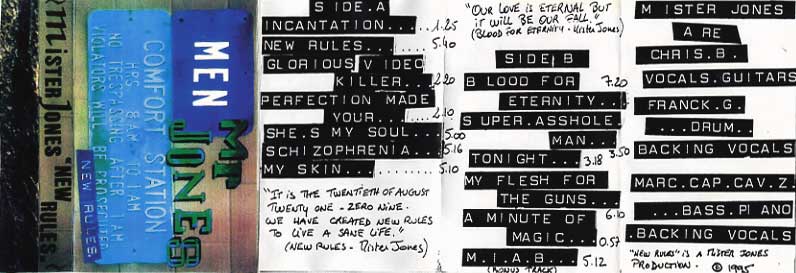 Mister Jones "New Rules."
MEN
COMFORT STATION
HRS 8 A.M. TO 1 AM
NO TRESPASSING AFTER 1 AM
VIOLATORS WILL BE PROSECUTED
NEW RULES
Mr
JONES
SIDE.A
INCANTATION.... 1.25
NEW RULES... 5.40
GLORIOUS VIDEO
KILLER... 2.20
PERFECTION MADE
YOUR... 2.10
SHE.S MY SOUL... 5.00
SCHIZOPHRENIA... 5.16
MY SKIN... 5.10
"IT IS THE TWENTIETH OF AUGUST
TWENTY ONE - ZERO NINE.
WE HAVE CREATED NEW RULES
TO LIVE A SANE LIFE."
(NEW RULES - Mister Jones)
"OUR LOVE IS ETERNAL BUT
IT WILL BE OUR FALL."
(BLOOD FOR ETERNITY - Mister Jones)
SIDE B
BLOOD FOR 7.20
ETERNITY...
SUPER.ASSHOLE.
MAN... 3.50
TONIGHT... 3.18
MY FLESH FOR
THE GUNS...
A MINUTE OF 6.10
MAGIC... 0.57
M.I.A.B... 5.12
(BONUS TRACK)
MISTER JONES
ARE
CHRIS.B.
VOCALS.GUITARS
FRANCK.G.
...DRUM..
BACKING VOCALS
MARC.CAP.CAV.Z.
...BASS.PIANO
.BACKING VOCALS
"NEW RULES" IS A MISTER JONES
PRODUCTION. © 1995